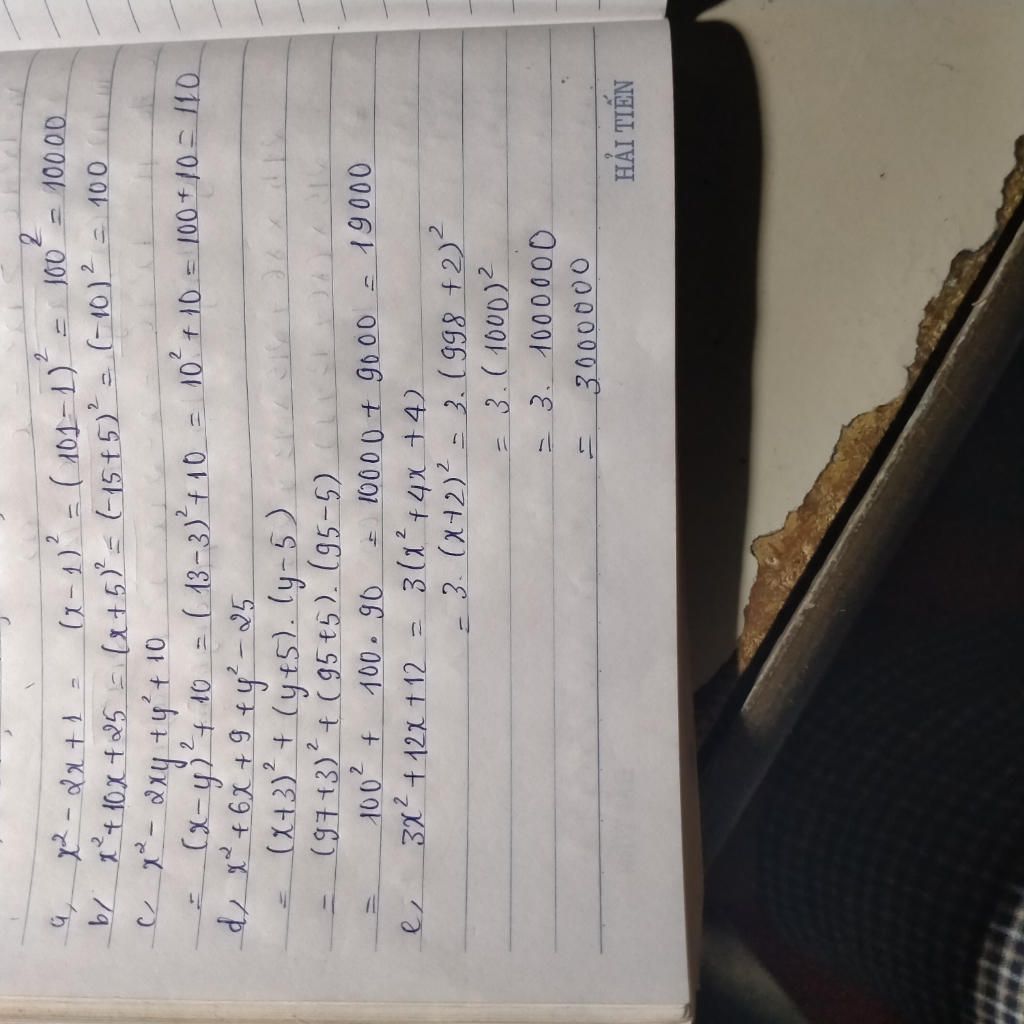 a, x² - 2x + 1 = (x - 1)² = (101 - 1)² = 100² = 10000
b, x² + 10x + 25 = (x + 5)² = (-15 + 5)² = (-10)² = 100
c, x² - 2xy + y² + 10
= (x - y)² + 10 = (13 - 3)² + 10 = 10² + 10 = 100 + 10 = 110
d, x² + 6x + 9 + y² - 25
= (x + 3)² + (y + 5) . (y - 5)
= (97 + 3)² + (95 + 5) . (95 - 5)
= 100² + 100 . 90 = 10000 + 9000 = 19000
e, 3x² + 12x + 12 = 3(x² + 4x + 4)
= 3 . (x + 2)² = 3 . (998 + 2)²
= 3 . (1000)²
= 3 . 1000000
= 3000000
HẢI TIẾN